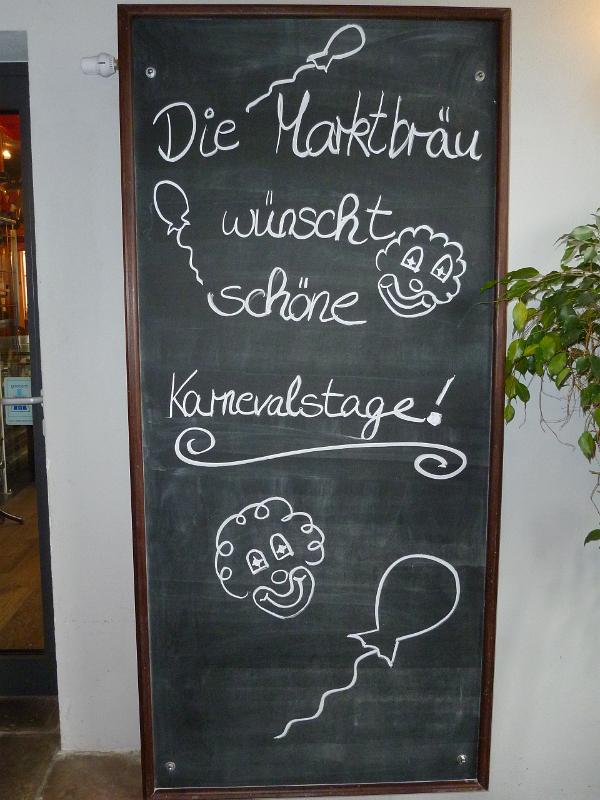 Die Marktbräu
wünscht
schöne
Karnevalstage!